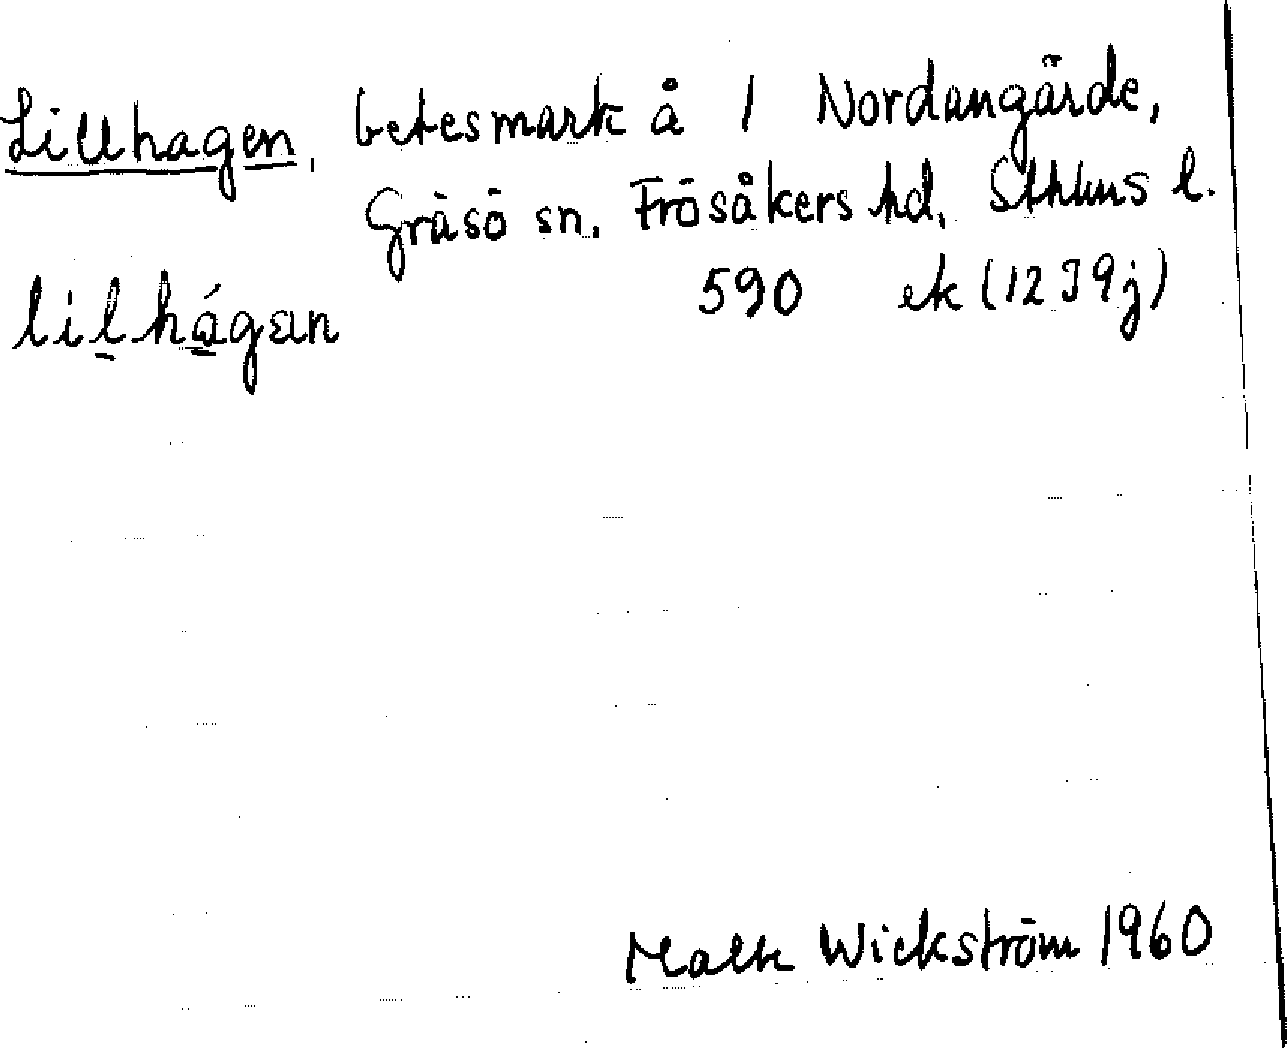 Lillhagen, betesmark å 1 Nordangärde,
Gräsö sn. Frösåkers hd. Sthlms l.
lilhágan 590 ek (1239j)
Wickström 1960